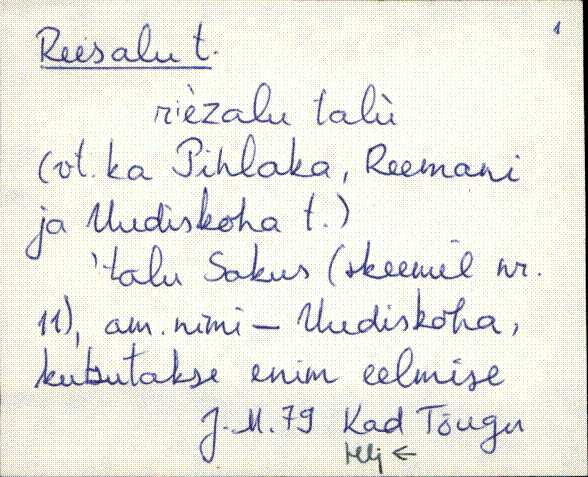 Reesalu t. 1
rièzalu talù
(vt. ka Pihlaka, Reemani
ja Uudiskoha t.)
'talu Sakus (skeemil nr.
11), am. nimi – Uudiskoha,
kutsutakse enim eelmise
J. M. 79 Kad Tõugu
Hlj ←